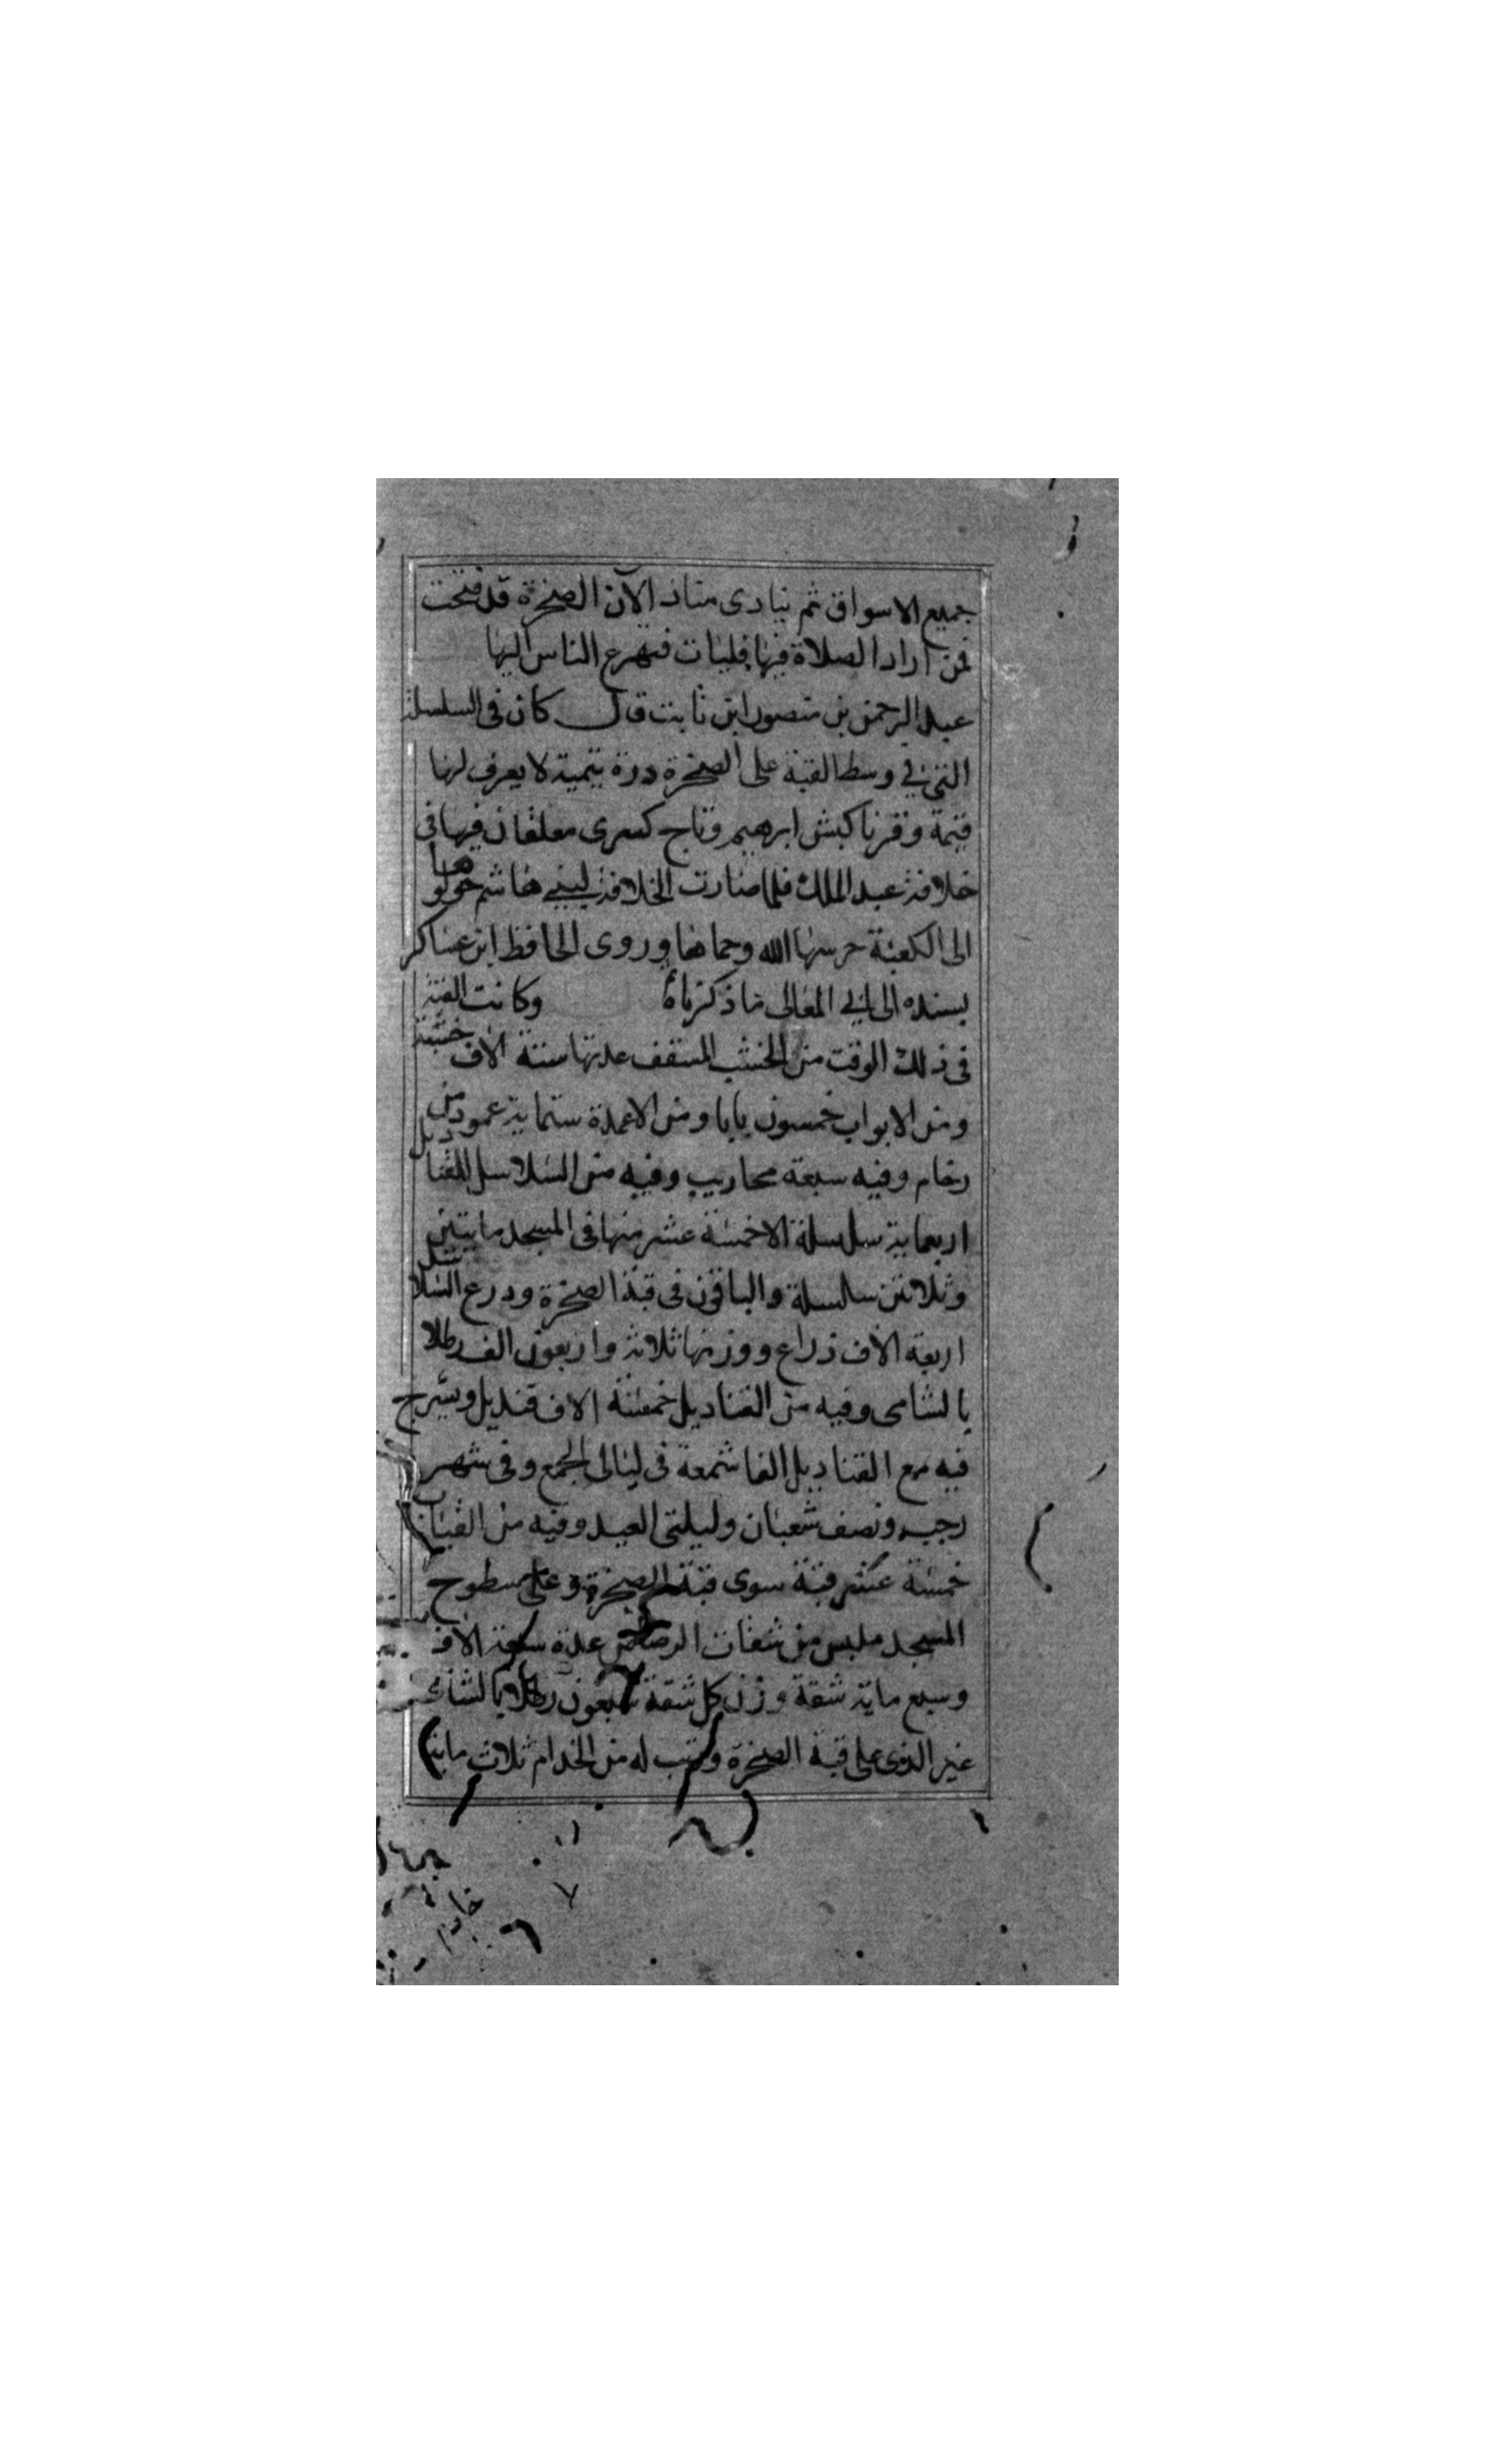 جميع الاسواق ثم ينادى مناد الآن الصخرة قد فتحت
فمن اراد الصلاة فيها فليات فتهرع الناس اليها
عبد الرحمن بن منصور ابن ثابت قال كان فى السلسلة
التى في وسط القبة على الصخرة درة يتيمة لا يعرف لها
قيمة وقرنا كبش ابرهيم وتاج كسرى معلقان فيها فى
خلافة عبد الملك فلما صارت الخلافة لبني هاشم حولوها
الى الكعبة حرسها الله وحماها وروى الحافظ ابن عساكر
بسنده الى ابي المعالى ما ذكرناه وكانت القبة
فى ذلك الوقت من الخشب المسقف عدتها ستة الاف خشبة
ومن الابواب خمسون بابا ومن الاعمدة ستماية عمود من
رخام وفيه سبعة محاريب وفيه من السلاسل للقناديل
اربعماية سلسلة الا خمسة عشر منها فى المسجد مايتين
وثلاثين سلسلة والباقون فى قبة الصخرة ودرع السلاسل
اربعة الاف ذراع ووزنها ثلاثة واربعون الف رطلا
بالشامى وفيه من القناديل خمسة الاف قنديل ويسرج
فيه مع القناديل الفا شمعة فى ليالى الجمع وفى شهر
رجب ونصف شعبان وليلتى العيد وفيه من القباب
خمسة عشر قبة سوى قبة الصخرة وعلى سطوح
المسجد ملبس من شقات الرصاص عدة سبعة الاف
وسبع ماية شقة وزن كل شقة سبعون رطلا بالشامى
غير الذى على قبة الصخرة ورتب له من الخدام ثلاث ماية
خادم